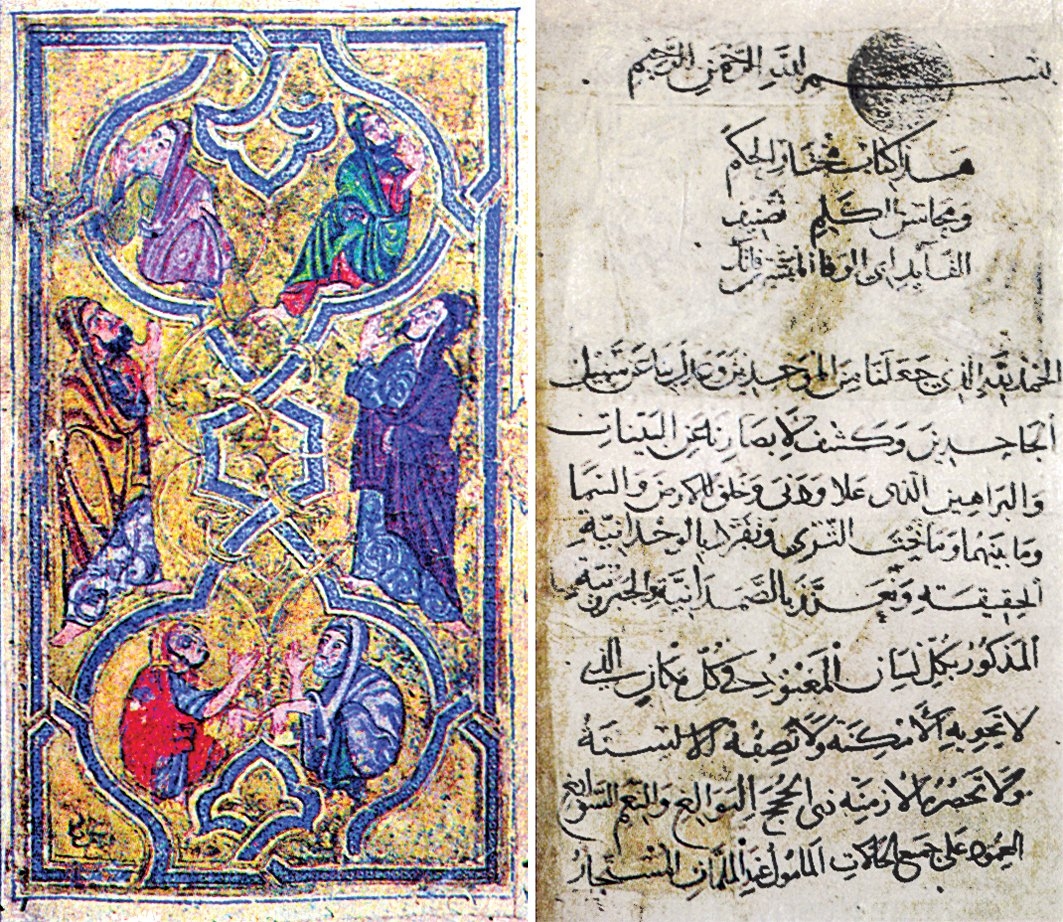 بسم الله الرحمن الرحيم
هذا كتاب مختار الحكم
ومحاسن الكلم تصنيف
القايد ابى الوفا المبشر بن فاتك
الحمد لله الذي جعلنا من الموحدين وعدل بنا عن سبيل
الجاحدين وكشف لابصارنا عن البينات
والبراهين الذى علا ودنى وخلق الارض والسما
وما بينهما وما تحت الثرى وتفرد بالوحدانية
الحقيقية وتعزز بالصمدانية والجبرية
المذكور بكل لسان المعبود في كل مكان الذي
لا تحويه الأمكنة ولا تصفه الالسنة
ولا تحصره الازمنة ذى الحجج البوالغ والنعم السوابغ
المحمود على جميع الحالات المامول عند الملمات المستجار